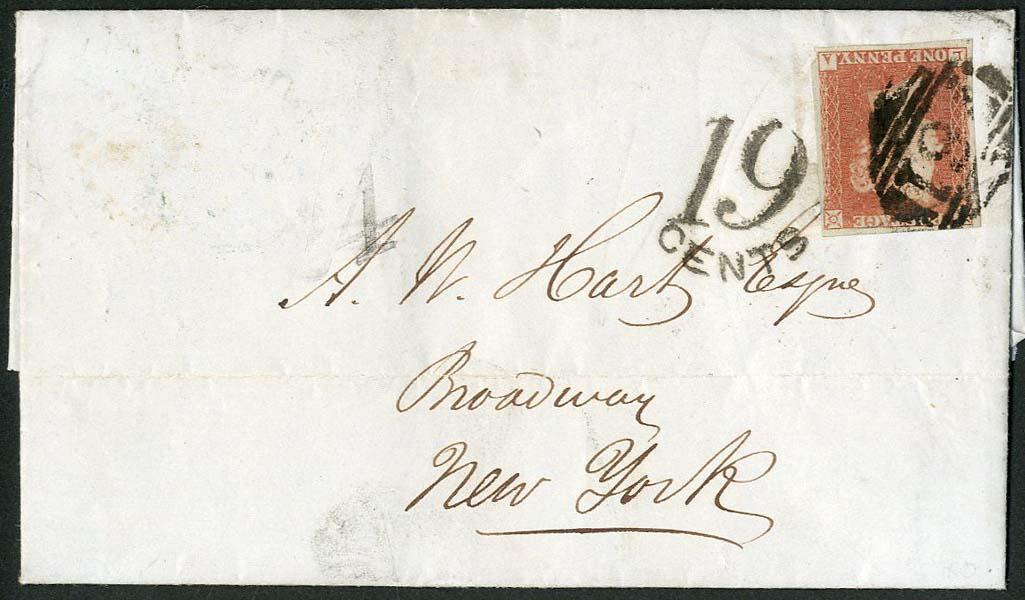 ONE PENNY
19
CENTS
4
A. W. Hart Esqre
Broadway
New York